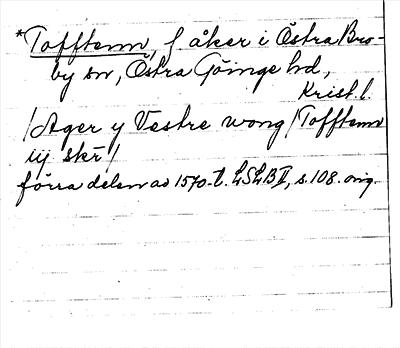 *Tofftenn, f. åker i Östra Bro-
by sn, Östra Göinge hd,
Krist. l.
/Ager y Vestre wong/Tofftenn
iij skr/
förra delen av 1570-t. LSLB II, s. 108. orig.